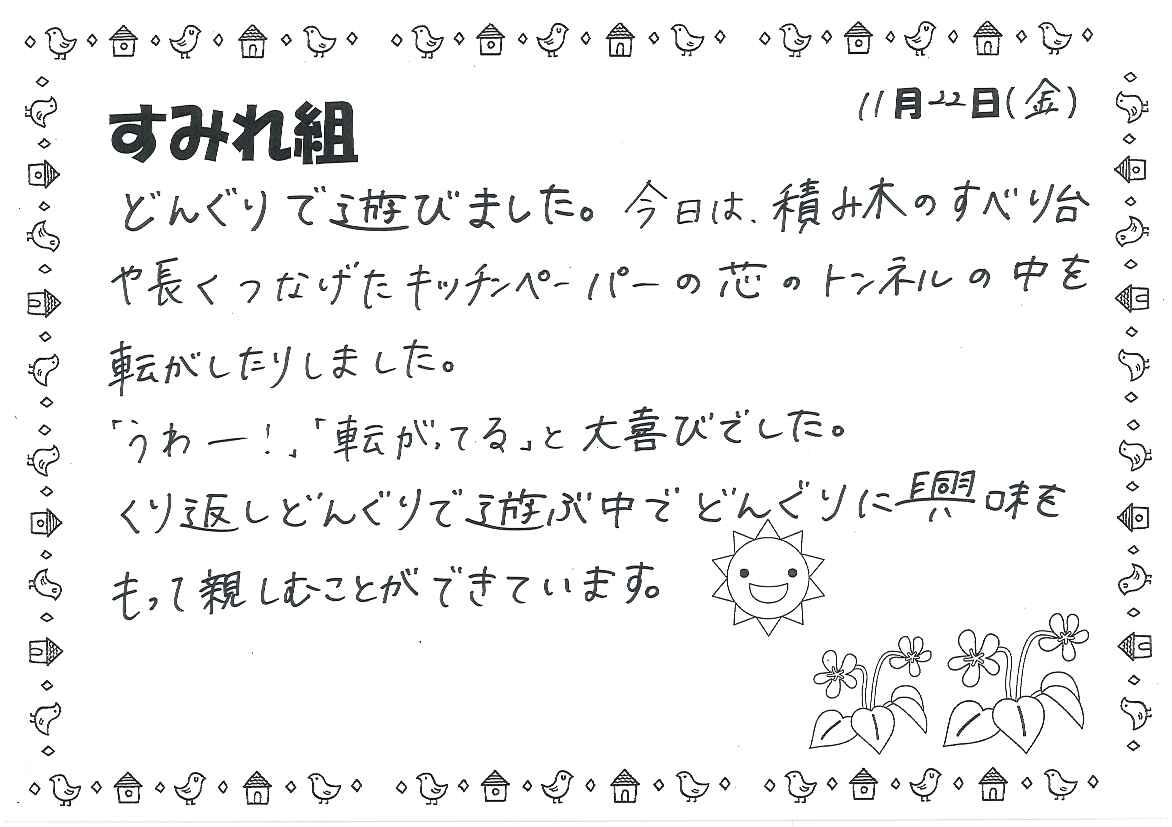 11月22日(金)
すみれ組
どんぐりで遊びました。今日は、積み木のすべり台
や長くつなげたキッチンペーパーの芯のトンネルの中を
転がしたりしました。
「うわー!」「転がってる」と大喜びでした。
くり返しどんぐりで遊ぶ中でどんぐりに興味を
もって親しむことができています。